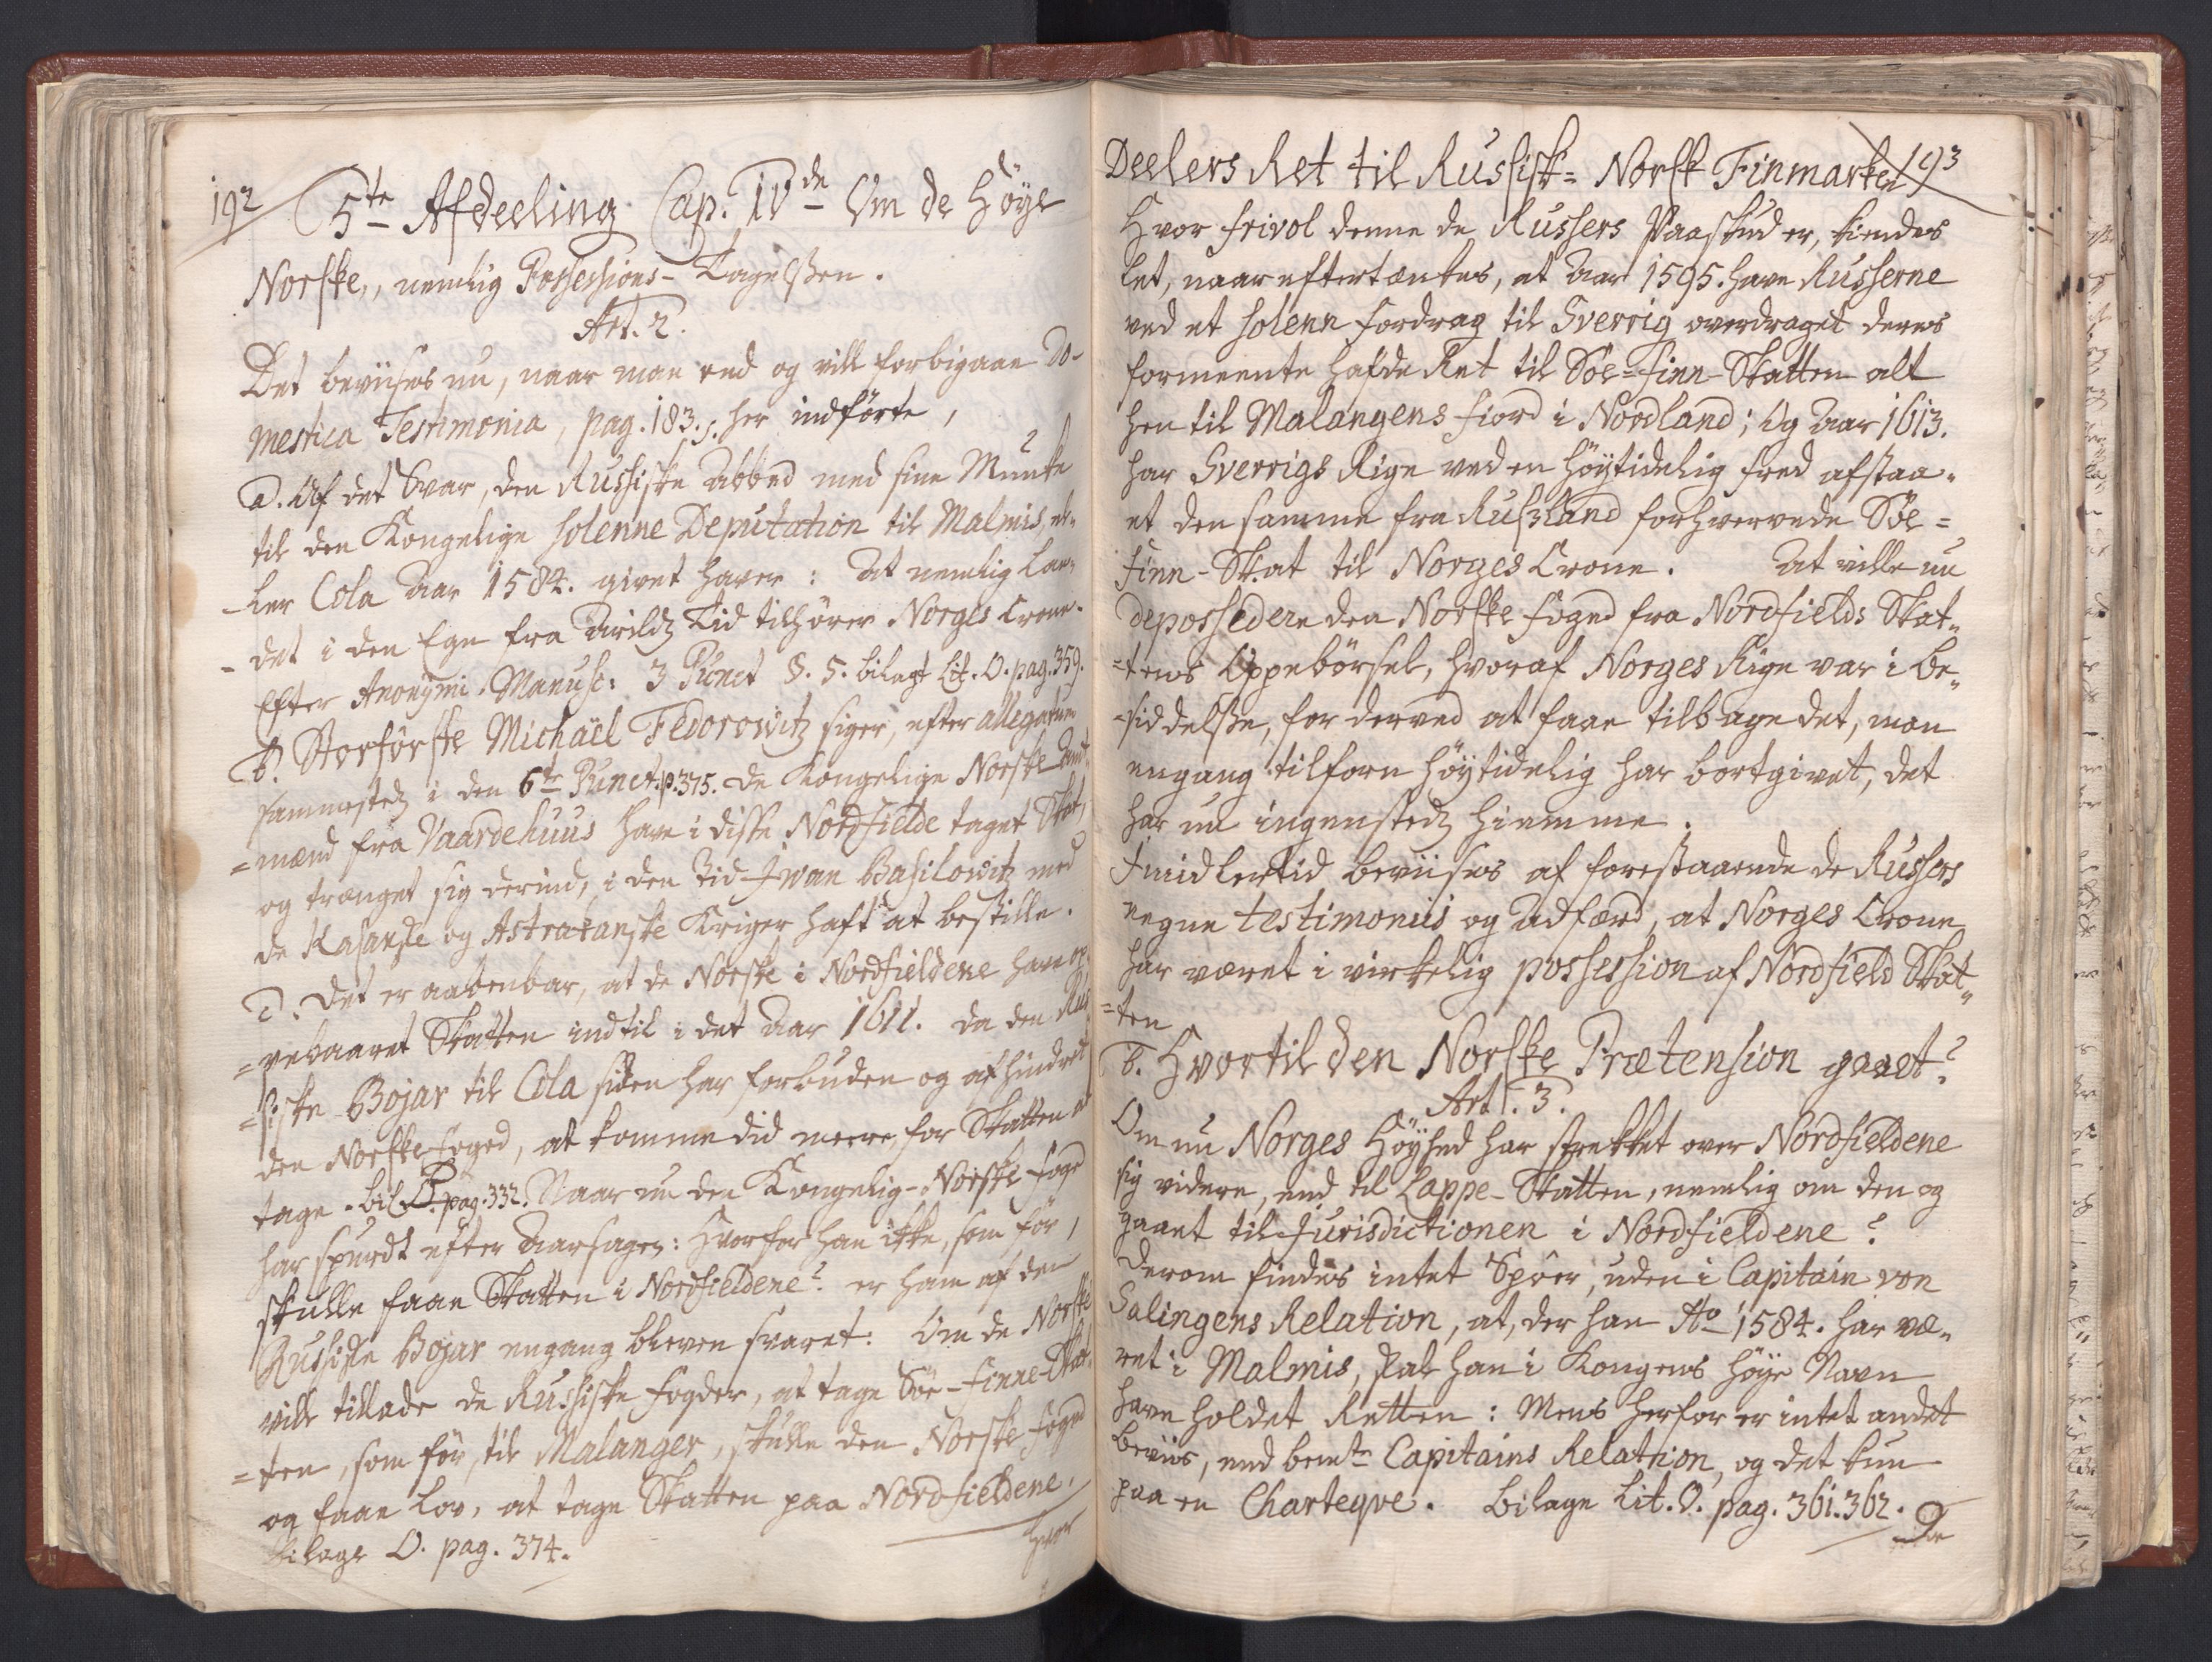 192
5te Afdeeling Cap. IVde Om de Höye
Norske, nemlig Possessions-Tagelsen.
Art. 2.
Det beviises nu, naar man end og vill forbigaae Do-
mestica Testimonia, pag. 183. s. her indförte,
a. Af det Svar, den Russiske Abbed med sine Munke
til den Kongelige solenne Deputation til Malmis, el-
-ler Cola Aar 1584. givet haver: At nemlig Lan-
-det i den Egn fra Arildz Tid tilhörer Norges Crone.
Efter Anonymi Manusc: 3 Punct §. 5. bilagt Lit. O. pag. 359.
b. Storförste Michaël Fedorowitz siger, efter allegatum
sammestedz i den 6te Punct. p. 375. de Kongelige Norske Amt-
=mænd fra Vaardehuus have i disse Nordfielde taget Skat,
og trænget sig derind, i den Tid Iwan Basilowitz med
de Kasanske og Astrakanske Kriger haft at bestille.
c. Det er aabenbar, at de Norske i Nordfieldene have op-
=pebaaret Skatten indtil i det Aar 1611. da den Rus-
=siske Bojar til Cola siden har forbuden og afhindret
den Norske Foged, at komme did meere, for Skatten at
tage. bil. O. pag. 332. Naar nu den Kongelig-Norske Foged
har spurdt efter Aarsagen: Hvorfor han ikke, som för,
skulle faae Skatten i Nordfieldene? er ham af den
Russiske Bojar engang bleven svaret: Om de Norske
ville tillade de Russiske Fogder, at tage Söe-Finne-Skat-
=ten, som för, til Malanger, skulle den Norske Foged
og faae Lov, at tage Skatten paa Nordfieldene.
bilage O. pag. 374.
Hvor
Deelers Ret til Russisk=Norsk Finmarken 193
Hvor frivol denne de Russers Paaskud er, kiendes
let, naar eftertænkes, at Aar 1595. have Russerne
ved et solenn fordrag til Sverrig overdraget deres
formeente hafde Ret til Söe=Finn-Skatten alt
hen til Malangens fiord i Nordland; Og Aar 1613.
har Sverrigs Rige ved en Höytidelig fred afstaa-
et den samme fra Rusland forhvervede Söe=
Finn-Skat til Norges Crone. At ville nu
depossedere den Norske Foged fra Nordfields Skat-
=tens Oppebörsel, hvoraf Norges Rige var i Be-
-siddelse, for derved at faae tilbage det, man
engang tilforn höytidelig har bortgivet, det
har nu ingenstedz hiemme.
Imidlertid beviises af forestaaende de Russers
egne testimoniis og Adfærd, at Norges Crone
har været i virkelig possession af Nordfield Skat-
=ten
b. Hvortil den Norske Prætension gaaet?
Art. 3.
Om nu Norges Höyhed har strekket over Nordfieldene
sig videre, end til Lappe-Skatten, nemlig om den og
gaaet til Jurisdictionen i Nordfieldene?
Derom findes intet Spöer, uden i Capitain von
Salingens Relation, at, der han Ao 1584. har væ-
ret i Malmis, skal han i Kongens höye Navn
have holdet Retten: Mens herfor er intet andet
beviis, end bemte Capitains Relation, og det kun
paa en Charteqve. Bilage Lit. O. pag. 361. 362.